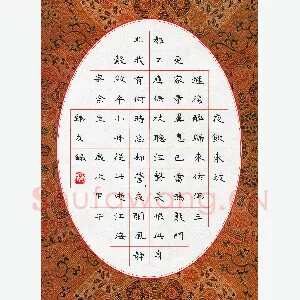 夜飲東坡
醒復醉歸來仿佛三
更家童鼻息已雷鳴敲門
都不應倚杖聽江聲長恨此身
非我有何時忘却營營夜闌風靜
縠紋平小舟從此逝江海
寄余生
Shufawang.CN